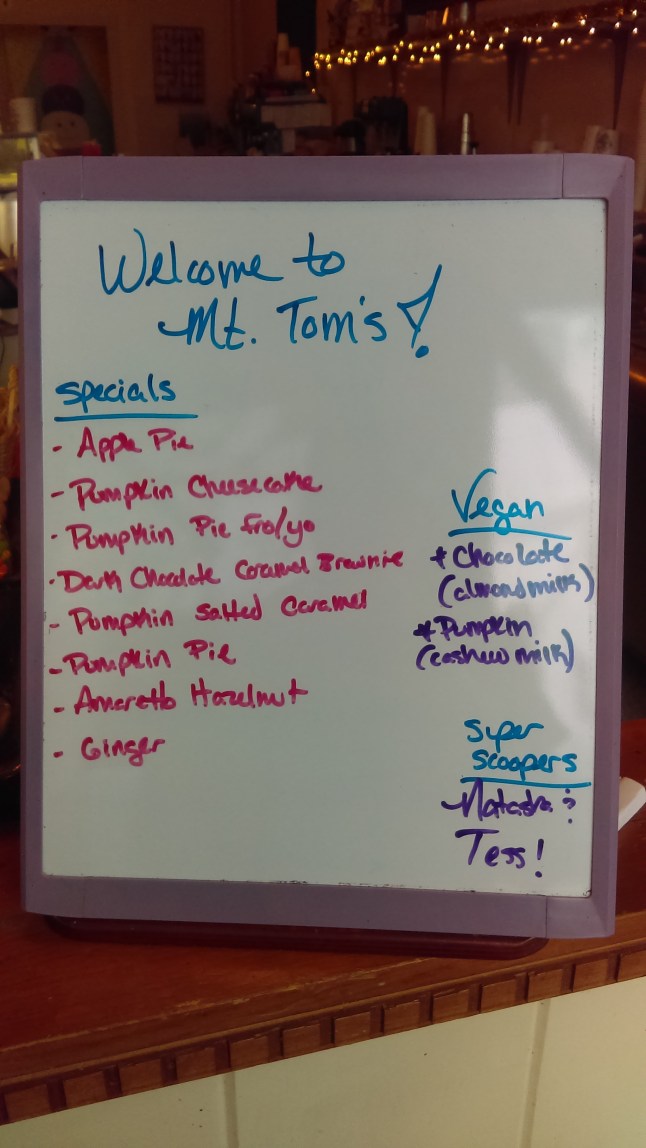 Welcome to
Mt. Tom's!
Specials
- Apple Pie
- Pumpkin Cheesecake
- Pumpkin Pie fro/yo
- Dark Chocolate Caramel Brownie
- Pumpkin Salted Caramel
- Pumpkin Pie
- Amaretto Hazelnut
- Ginger
Vegan
* Chocolate
(almond milk)
* Pumpkin
(cashew milk)
Super
Scoopers
Natasha &
Tess!